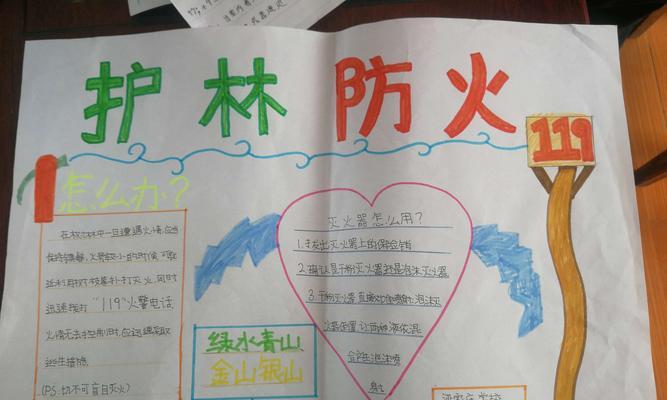 护林防火
119
怎么办?
在森林中一旦遭遇火情,应当
保持镇静,火势较小的时候,可就
近利用树枝扑打灭火,同时
迅速拨打“119”火警电话,
火情无法控制时,应迅速采取
逃生措施
(PS:切不可盲目灭火)
灭火器怎么用?
1.拔出灭火器上的保险销
2.确认是干粉灭火器还是泡沫灭火器
3.干粉灭火器直接对
让两种液体混
合起泡沫喷
射
绿水青山
金山银山
学校